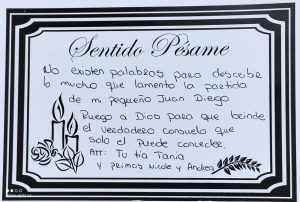 Sentido Pésame
No existen palabras para describir
lo mucho que lamento la partida
de mi pequeño Juan Diego
Ruego a Dios para que brinde
el verdadero consuelo que
solo el puede conceder.
Att: Tu tía Tania
y primas Nicole y Andrea